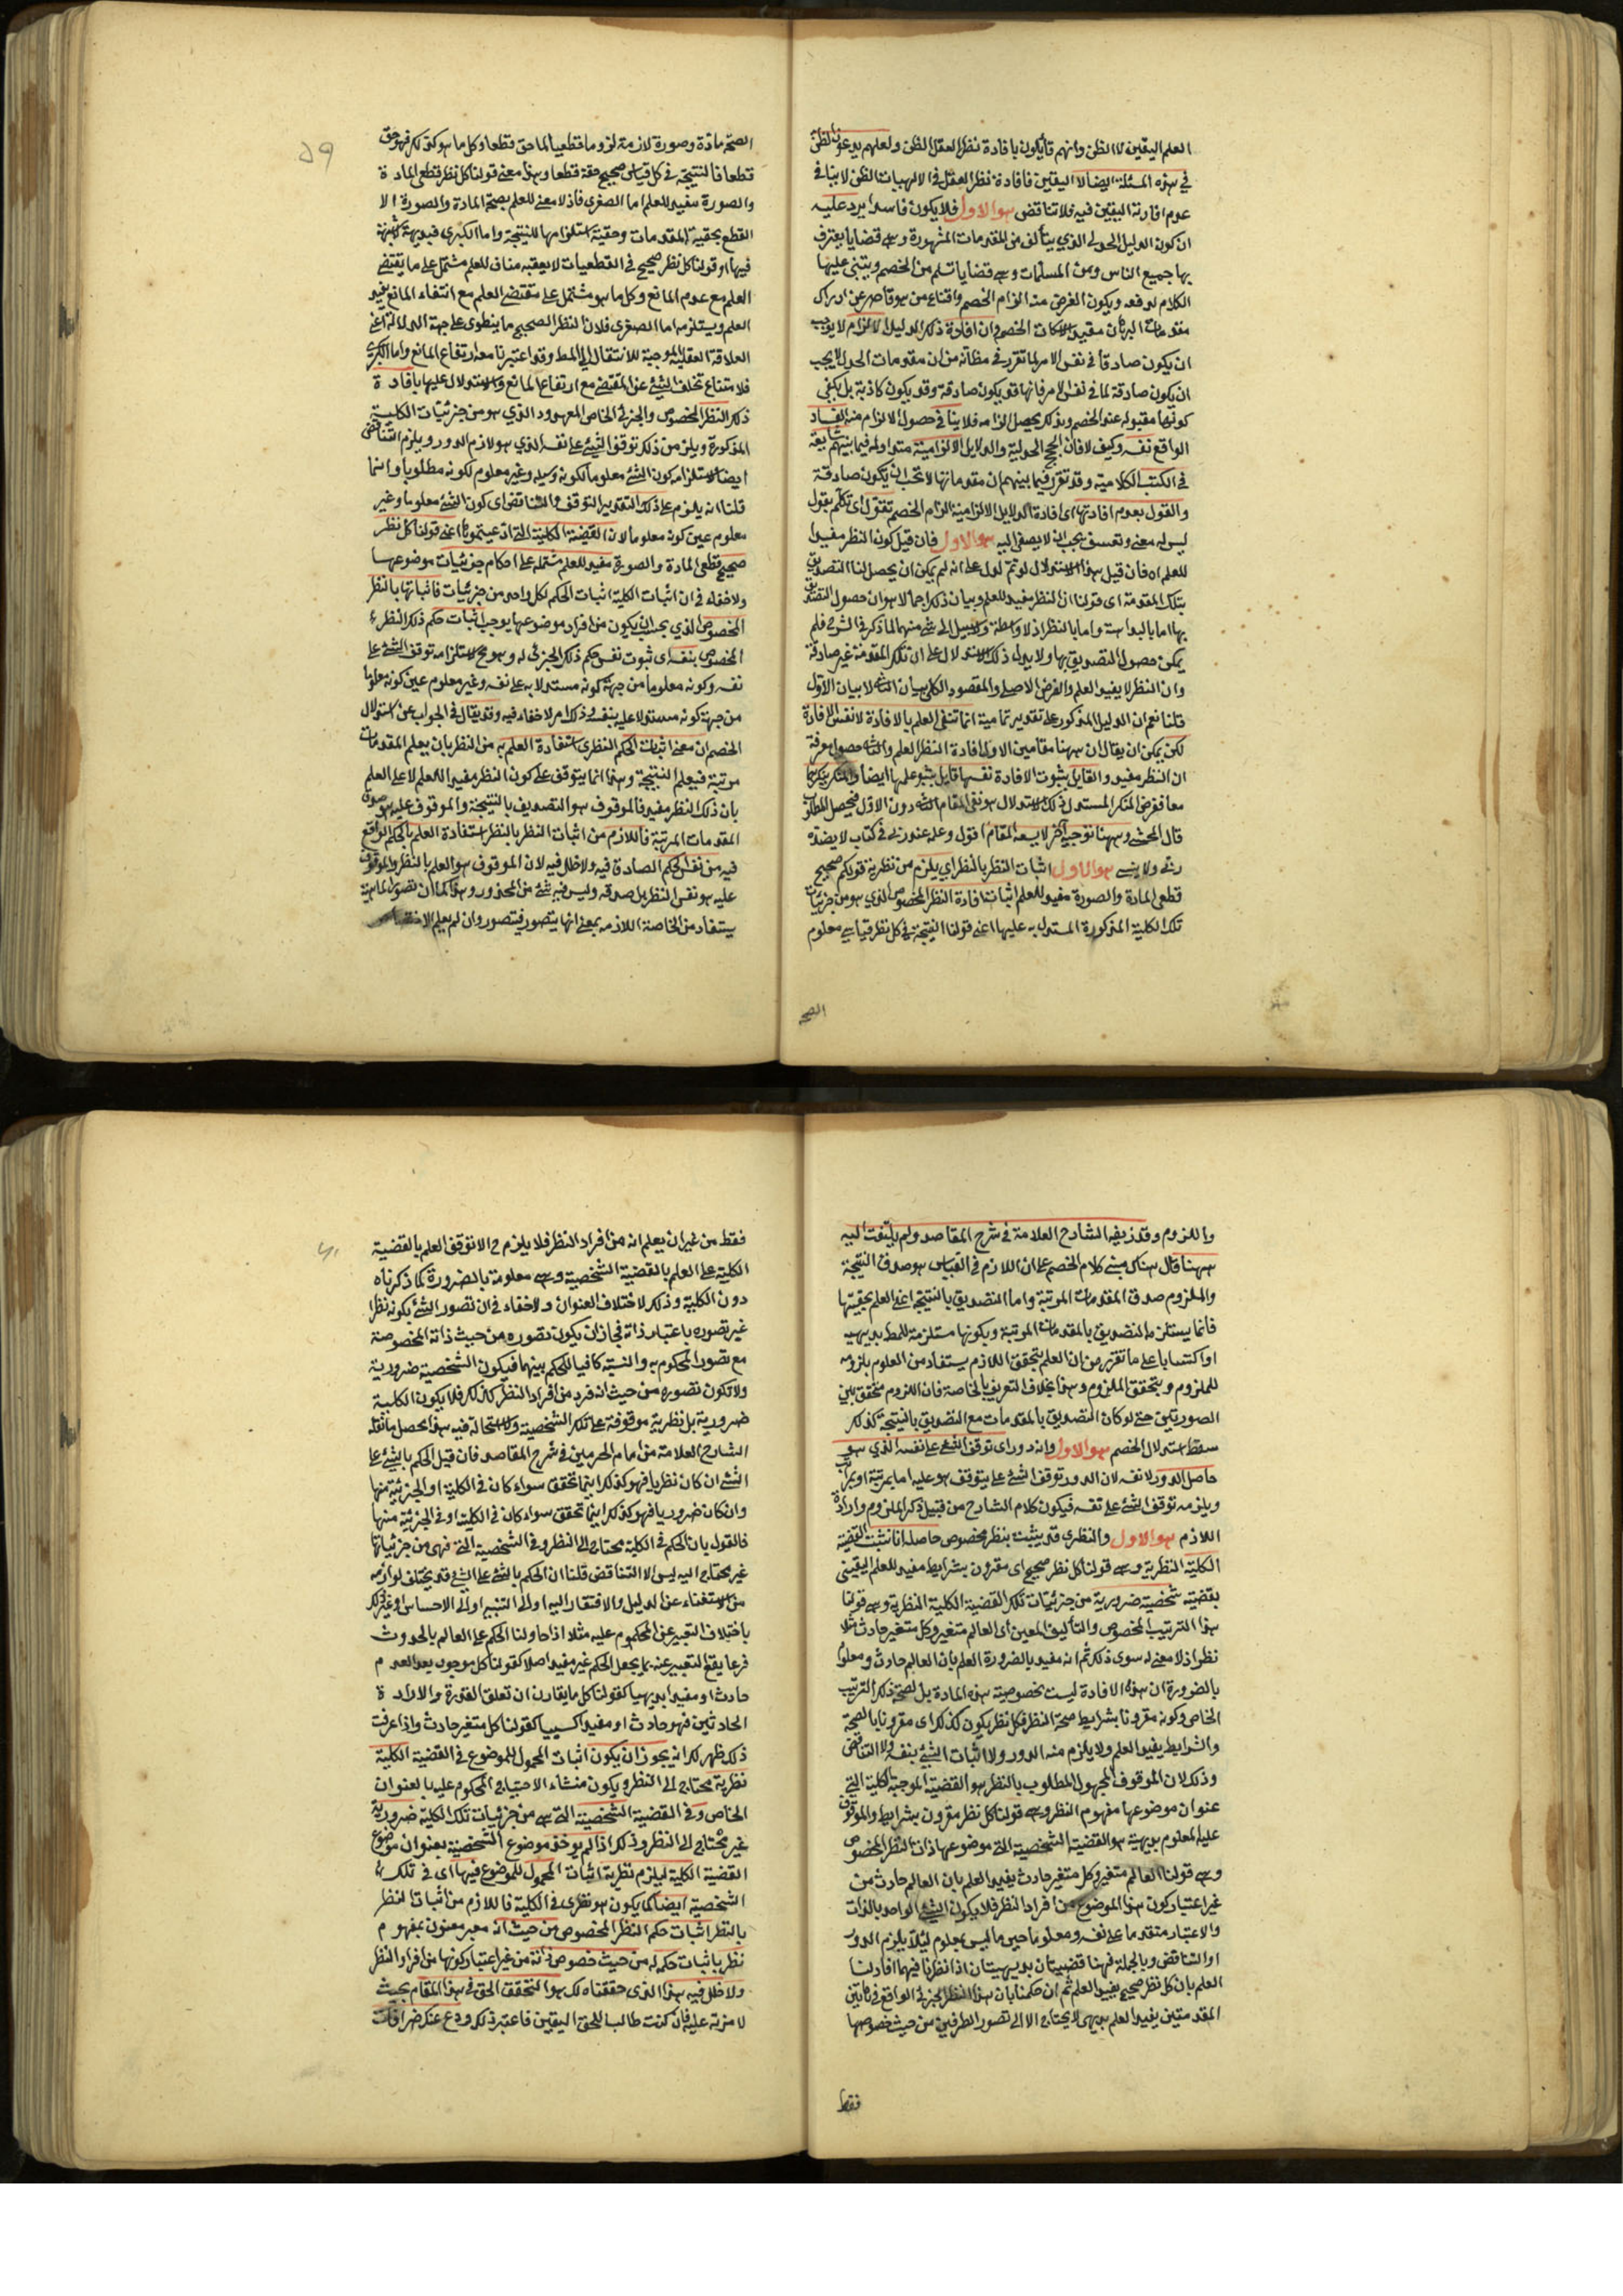 العلم اليقين لا الظن وانهم قايلون بافادة نظر العقل الظن ولعلهم يدعون الظن
في هذه المسئلة ايضا لا اليقين فافادة نظر العقل في الالهيات الظن لا ينافي
عدم افادته اليقين فيه فلا تناقض هو الاول فلا يكون فاسدا يرد عليه
ان كون الدليل الجدلي الذي يتألف من المقدمات المشهورة وهي قضايا يعترف
بها جميع الناس ومن المسلمات وهي قضايا تسلم من الخصم ويبتنى عليها
الكلام لدفعه ويكون الغرض منه الزام الخصم واقناع من هو قاصر عن ادراك
مقدمات البرهان مفيد لاسكات الخصم وان افادة ذلك الدليل الالزام لا يوجب
ان يكون صادقا في نفس الامر لما تقرر في مظانه من ان مقدمات الجدل لا يجب
ان يكون صادقة لما في نفس الامر فانها قد يكون صادقة وقد يكون كاذبة بل يكفي
كونها مقبولة عند الخصم وبذلك يحصل الزامه فلا ينافي حصول الالزام منه الفساد
الواقع نفسه وكيف لا فان الحجج الجدلية والدلايل الالزامية متداولة فيما بينهم شايعة
في الكتب الكلامية وقد تقرر فيما بينهم ان مقدماتها لا تجب ان يكون صادقة
والقول بعدم افادتها اى افادة الدلايل الالزامية الزام الخصم تقول اى تكلم بقول
ليس له معنى وتعسف يجب ان لا يصغى اليه هو الاول فان قيل كون النظر مفيدا
للعلم اه فان قيل هذا الاستدلال لو تم لدل على انه لم يمكن ان يحصل لنا التصديق
بتلك المقدمة اى قولنا ان النظر مفيد للعلم وبيان ذلك اجمالا هو ان حصول التصديق
بها اما بالبداهة واما بالنظر اذ لا واسطة ولا سبيل الى شئ منهما لما ذكر في الشرح فلم
يمكن حصول التصديق بها ولا يدل ذلك الاستدلال على ان تلك المقدمة غير صادقة
وان النظر لا يفيد العلم والغرض الاصلي والمقصود الكلي بيان الثاني لا بيان الاول
قلنا نعم ان الدليل المذكور على تقدير تمامية انما تنفى العلم بالافادة لا نفس الافادة
لكن يمكن ان يقال ان ههنا مقامين الاول افادة النظر العلم والثاني حصول معرفة
ان النظر مفيد والقايل بثبوت الافادة نفسها قايل بثبوت علمها ايضا والمنكر ينكرهما
معا فغرض المنكر المستدل ذلك الاستدلال هو نفى المقام الثاني دون الاول فيحصل المطلوب
قال المحشى وههنا توجيه آخر لا يسعه المقام اقول وعله عند ربى في كتاب لا يضل
ربى ولا ينسى هو الاول اثبات النظر بالنظر اي يلزم من نظرية قولكم صحيح
قطعى المادة والصورة مفيد للعلم اثبات افادة النظر المخصوص الذي هو من جزئيات
تلك الكلية المذكورة المستدل به عليها اعنى قولنا النتيجة في كل نظر قياسي معلوم
الصحة
٥٩
الصحة مادة وصورة لازمة لزوما قطعيا لما حق قطعا وكل ما هو كذلك فهو حق
قطعا فالنتيجة في كل قياس صحيح حقة قطعا وهذا معنى قولنا كل نظر قطعى المادة
والصورة مفيد للعلم اما الصغرى فاذ لا معنى للعلم بصحة المادة والصورة الا
القطع بحقية المقدمات وحقية استلزامها للنتيجة واما الكبرى فبديهية لا شبهة
فيها او قولنا كل نظر صحيح في القطعيات لا يعقبه مناف للعلم مشتمل على ما يقتضى
العلم مع عدم المانع وكل ما هو مشتمل على مقتضى العلم مع انتفاء المانع يفيد
العلم ويستلزمه اما الصغرى فلان النظر الصحيح ما ينطوى على جهة الدلالة اعنى
العلاقة العقلية الموجبة للانتقال الى المط وقد اعتبرنا معه ارتفاع المانع واما الكبرى
فلامتناع تخلف الشيئ عن المقتضى مع ارتفاع المانع والاستدلال عليها بافادة
ذلك النظر المخصوص والجزئي الخاص المعهود الذي هو من جزئيات الكلية
المذكورة ويلزم من ذلك توقف الشيئ على نفسه الذي هو لازم الدور ويلزم التناقض
ايضا لاستلزامه كون الشئ معلوما لكونه وسيلة وغير معلوم لكونه مطلوبا وانما
قلنا انه يلزم على ذلك التقدير التوقف والتناقض اى كون الشئ معلوما وغير
معلوم عين كونه معلوما لان القضية الكلية التي ادعيتموها اعنى قولنا كل نظر
صحيح قطعى المادة والصورة مفيد للعلم مشتملة على احكام جزئيات موضوعها
ولا خفاء في ان اثبات الكلية اثبات الحكم لكل واحد من جزئيات فاثباتها بالنظر
المخصوص الذي يجب ان يكون من افراد موضوعها يوجب اثبات حكم ذلك النظر
المخصوص بنفسه اى ثبوت نفس حكم ذلك الجزئى له وهو مح لاستلزامه توقف الشئ على
نفسه وكونه معلوما من جهة كونه مستدلا به على نفسه وغير معلوم عين كونه معلوما
من جهة كونه مستدلا عليه بنفسه وذلك امر لا خفاء فيه وقد يقال في الجواب عن استدلال
الخصم ان معنى اثبات الحكم النظرى استفادة العلم به من النظر بان يعلم المقدمات
مرتبة فيعلم النتيجة وهذا انما يتوقف على كون النظر مفيدا للعلم لا على العلم
بان ذلك النظر مفيد فالموقوف هو التصديق بالنتيجة والموقوف عليه هو صدق
المقدمات المرتبة فاللازم من اثبات النظر بالنظر استفادة العلم بالحكم الواقع
فيه من نفس الحكم الصادق فيه ولا خلل فيه لان الموقوف هو العلم بالنظر والموقوف
عليه هو نفس النظر بل صدقه وليس فيه شئ من المحذور وهذا كما ان تصور الماهية
يستفاد من الخاصة اللازمة بمعنى انها يتصور فيتصور وان لم يعلم الاختصاص
واللزوم وقد زيفه الشارح العلامة في شرح المقاصد ولم يلتفت اليه
ههنا قال هناك مبنى كلام الخصم على ان اللازم في القياس هو صدق النتيجة
والملزوم صدق المقدمات المرتبة واما التصديق بالنتيجة اعنى العلم بحقيتها
فانما يستلزمه التصديق بالمقدمات المرتبة وبكونها مستلزمة للمط بديهية
او اكتسابا على ما تقرر من ان العلم بتحقق اللازم يستفاد من العلوم بلزومه
للملزوم وبتحقق الملزوم وهذا بخلاف التعريف بالخاصة فان اللزوم متحقق بين
الصورتين حتى لو كان التصديق بالمقدمات مع التصديق بالنتيجة كذلك
سقط استدلال الخصم هو الاول وانه دور اى توقف الشئ على نفسه الذي هو
حاصل الدور لا نفسه لان الدور توقف الشئ على يتوقف هو عليه اما بمرتبة او بمراتب
ويلزمه توقف الشئ على نفسه فيكون كلام الشارح من قبيل ذكر الملزوم وارادة
اللازم هو الاول والنظرى قد يثبت بنظر مخصوص حاصله انا نثبت القضية
الكلية النظرية وهي قولنا كل نظر صحيح اى مقرون بشرايط مفيد للعلم اليقينى
بقضية شخصية ضرورية من جزئيات تلك القضية الكلية النظرية وهي قولنا
هذا الترتيب المخصوص والتأليف المعين اى العالم متغير وكل متغير حادث مثلا
نظر اذ لا معنى له سوى ذلك ثم انه مفيد بالضرورة العلم بان العالم حادث ومعلوم
بالضرورة ان هذه الافادة ليست بخصوصية هذه المادة بل لصحة ذلك الترتيب
الخاص وكونه مقرونا بشرايط صحة النظر فكل نظر يكون كذلك اى مقرونا بالصحة
والشرايط يفيد العلم ولا يلزم منه الدور ولا اثبات الشئ بنفسه ولا التناقض
وذلك لان الموقوف المجهول المطلوب بالنظر هو القضية الموجبة الكلية التي
عنوان موضوعها مفهوم النظر وهي قولنا كل نظر مقرون بشرايط والموقوف
عليه المعلوم بديهية هو القضية الشخصية التي موضوعها ذات النظر المخصوص
وهي قولنا العالم متغير وكل متغير حادث يفيد العلم بان العالم حادث من
غير اعتبار كون هذا الموضوع من افراد النظر فلا يكون الشيئ الواحد بالذات
والاعتبار متقدما على نفسه ومعلوما حين ما ليس بمعلوم ليلا يلزم الدور
او التناقض وبالجملة فههنا قضيتان بديهيتان اذا نظرنا فيهما افاد لنا
العلم بان كل نظر صحيح يفيد العلم ثم ان حكمنا بان هذا النظر الجزئى الواقع في هاتين
المقدمتين يفيد العلم بديهى لا يحتاج الا الى تصور الطرفين من حيث خصوصهما
فقط
٦٠
فقط من غير ان يعلم انه من افراد النظر فلا يلزم ح الا توقف العلم بالقضية
الكلية على العلم بالقضية الشخصية وهي معلومة بالضرورة كما ذكرناه
دون الكلية وذلك لاختلاف العنوان ولا خفاء في ان تصور الشئ بكونه نظرا
غير تصوره باعتبار ذاته فجاز ان يكون تصوره من حيث ذاته المخصوصة
مع تصور المحكوم به والنسبة كافيا للحكم بينهما فيكون الشخصية ضرورية
ولا تكون تصوره من حيث انه فرد من افراد النظر كذلك فلا يكون الكلية
ضرورية بل نظرية موقوفة على تلك الشخصية ولا استحالة فيه هذا محصل ما نقله
الشارح العلامة من امام الحرمين في شرح المقاصد فان قيل الحكم بالشيئ على
الشئ ان كان نظريا فهو كذلك اينما تحقق سواء كان في الكلية او الجزئية منها
وان كان ضروريا فهو كذلك اينما تحقق سواء كان في الكلية او في الجزئية منها
فالقول بان الحكم في الكلية محتاج الى النظر وفي الشخصية التي فهي من جزئياتها
غير محتاج اليه ليس الا التناقض قلنا ان الحكم بالشئ على الشئ قد يختلف لوازمه
من الاستغناء عن الدليل والافتقار اليه او الى التنبيه او الى الاحساس او غير ذلك
باختلاف التعبير عن المحكوم عليه مثلا اذا حاولنا الحكم على العالم بالحدوث
فربما يقع التعبير عنه بما يجعل الحكم غير مفيد اصلا كقولنا كل موجود بعد العدم
حادث او مفيدا بديهيا كقولنا كل ما يقارن ان تعلق القدرة والارادة
الحادثين فهو حادث او مفيدا كسبيا كقولنا كل متغير حادث واذا عرفت
ذلك ظهر لك انه يجوز ان يكون اثبات المحمول للموضوع في القضية الكلية
نظرية محتاج الى النظر ويكون منشاء الاحتياج المحكوم عليه بالعنوان
الخاص وفي القضية الشخصية التي هي من جزئيات تلك الكلية ضرورية
غير محتاج الى النظر وذلك اذا لم يوخذ موضوع الشخصية بعنوان موضوع
القضية الكلية ليلزم نظرية اثبات المحمول للموضوع فيها اى في تلك
الشخصية ايضا كما يكون هو نظرى في الكلية فاللازم من اثبات النظر
بالنظر اثبات حكم النظر المخصوص من حيث انه معبر معنون بمفهوم
نظر باثبات حكمه له من حيث خصوص ذاته من غير اعتبار كونها من افراد النظر
ولا خلل فيه هذا الذى حققناه لك هو التحقق الحق في هذا المقام بحيث
لا مزية عليه فان كنت طالبا للحق اليقين فاعتبر ذلك ودع عنك خرافات